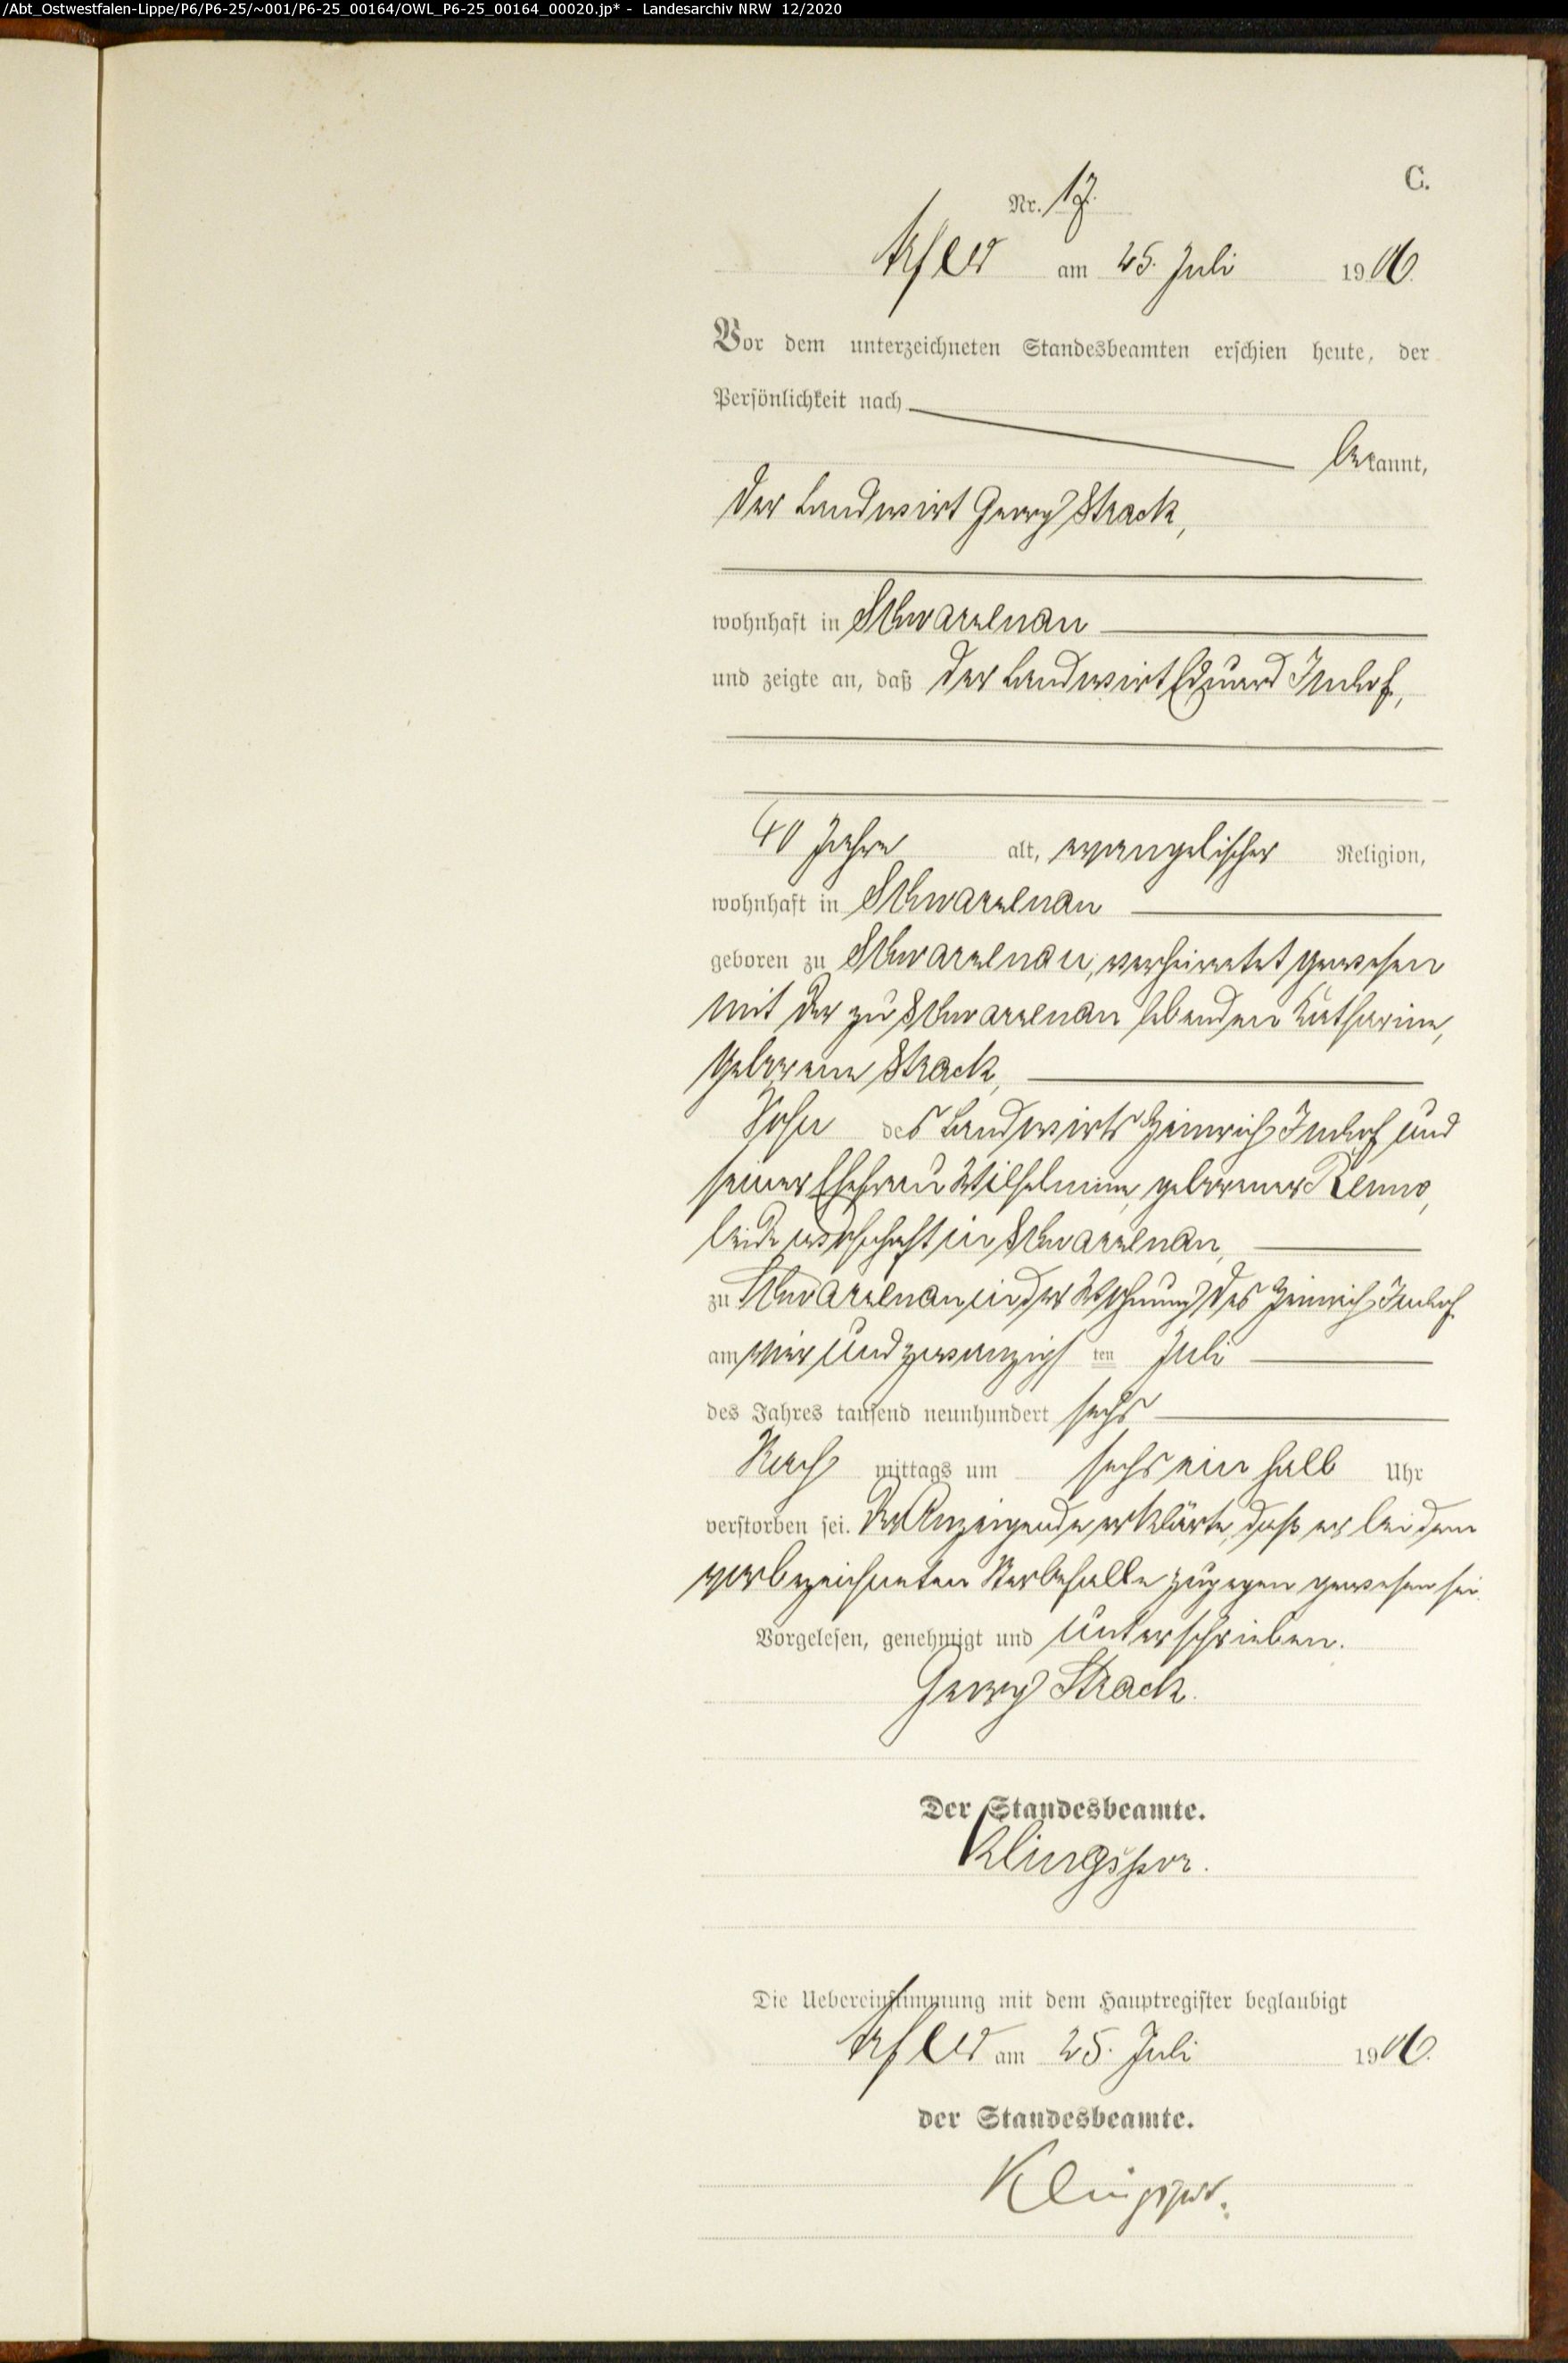 /Abt_Ostwestfalen-Lippe/P6/P6-25/~001/P6-25_00164/OWL_P6-25_00164_00020.jp* - Landesarchiv NRW 12/2020
C.
Nr. 17.
Arfeld am 25. Juli 1906.
Vor dem unterzeichneten Standesbeamten erschien heute, der
Persönlichkeit nach
bekannt,
der Landwirt Georg Strack,
wohnhaft in Schwarzenau
und zeigte an, daß der Landwirt Eduard Imhof,
40 Jahre alt, evangelischer Religion,
wohnhaft in Schwarzenau
geboren zu Schwarzenau, verheiratet gewesen
mit der zu Schwarzenau lebenden Katharine,
geborene Strack,
Sohn des Landwirts Heinrich Imhof und
seiner Ehefrau Wilhelmine, geborener Renno,
beide wohnhaft in Schwarzenau,
zu Schwarzenau in der Wohnung des Heinrich Imhof
am vier und zwanzig ten Juli
des Jahres tausend neunhundert sechs
Nach mittags um sechs ein halb Uhr
verstorben sei. Der Anzeigende erklärte, daß er bei dem
vorbezeichneten Sterbefalle zugegen gewesen sei.
Vorgelesen, genehmigt und unterschrieben.
Georg Strack.
Der Standesbeamte.
Klingspor.
Die Uebereinstimmung mit dem Hauptregister beglaubigt
Arfeld am 25. Juli 1906.
der Standesbeamte.
Klingspor.